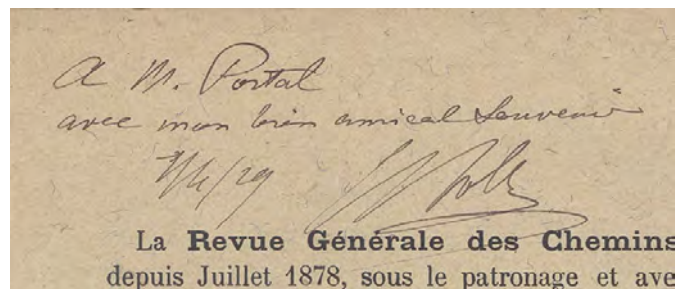 A M. Portal
avec mon bien amical souvenir
La Revue Générale des Chemins
depuis Juillet 1878, sous le patronage et ave